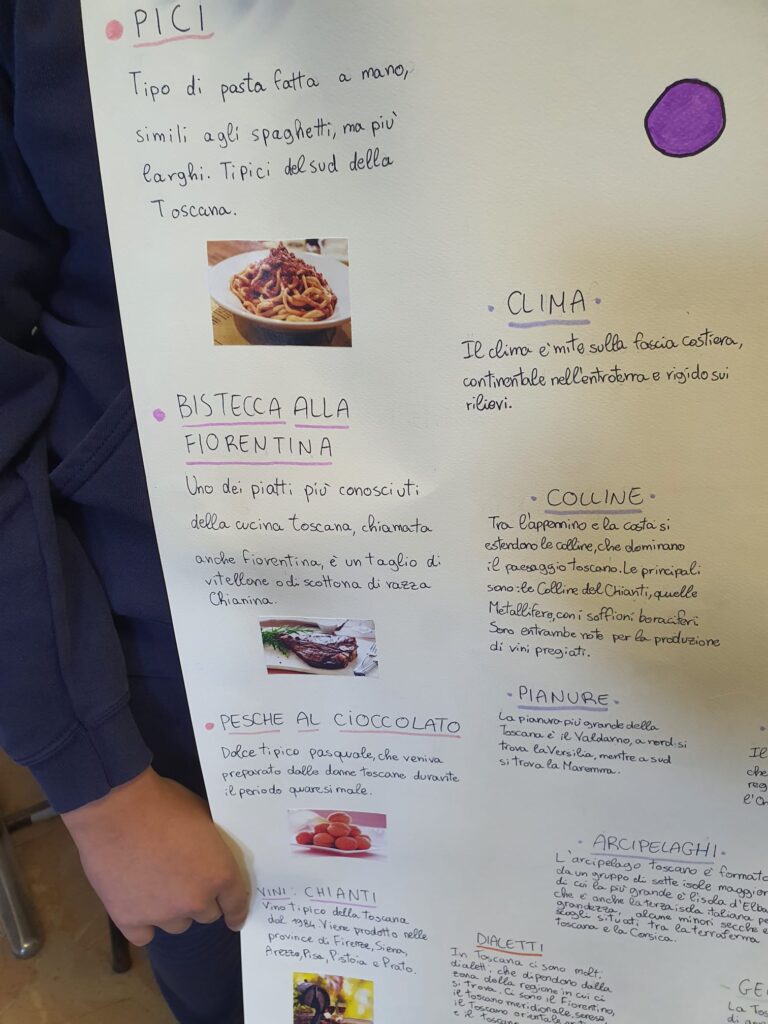 PICI
Tipo di pasta fatta a mano,
simili agli spaghetti, ma più
larghi. Tipici del sud della
Toscana.
BISTECCA ALLA
FIORENTINA
Uno dei piatti più conosciuti
della cucina toscana, chiamata
anche fiorentina, è un taglio di
vitellone o di scottona di razza
Chianina.
PESCHE AL CIOCCOLATO
Dolce tipico pasquale, che veniva
preparato dalle donne toscane durante
il periodo quaresimale.
VINI: CHIANTI
Vino tipico della toscana
dal 1984. Viene prodotto nelle
province di Firenze, Siena,
Arezzo, Pisa, Pistoia e Prato.
CLIMA
Il clima è mite sulla fascia costiera,
continentale nell'entroterra e rigido sui
rilievi.
COLLINE
Tra l'appennino e la costa si
estendono le colline, che dominano
il paesaggio toscano. Le principali
sono: le Colline del Chianti, quelle
Metallifere, con i soffioni boraciferi.
Sono entrambe note per la produzione
di vini pregiati.
PIANURE
La pianura più grande della
Toscana è il Valdarno, a nord si
trova la Versilia, mentre a sud
si trova la Maremma.
ARCIPELAGHI
L'arcipelago toscano è formato
da un gruppo di sette isole maggior
di cui la più grande è l'isola d'Elba
che è anche la terza isola italiana pe
grandezza, alcune minori secche e
scogli situati tra la terraferma
toscana e la Corsica.
DIALETTI
In Toscana ci sono molti
dialetti, che dipendono dalla
zona della regione in cui ci
si trova. Ci sono il Fiorentino,
il toscano meridionale, senese,
il Toscano orientale
e il toscano
Il
che
reg
GE
La Tos
di